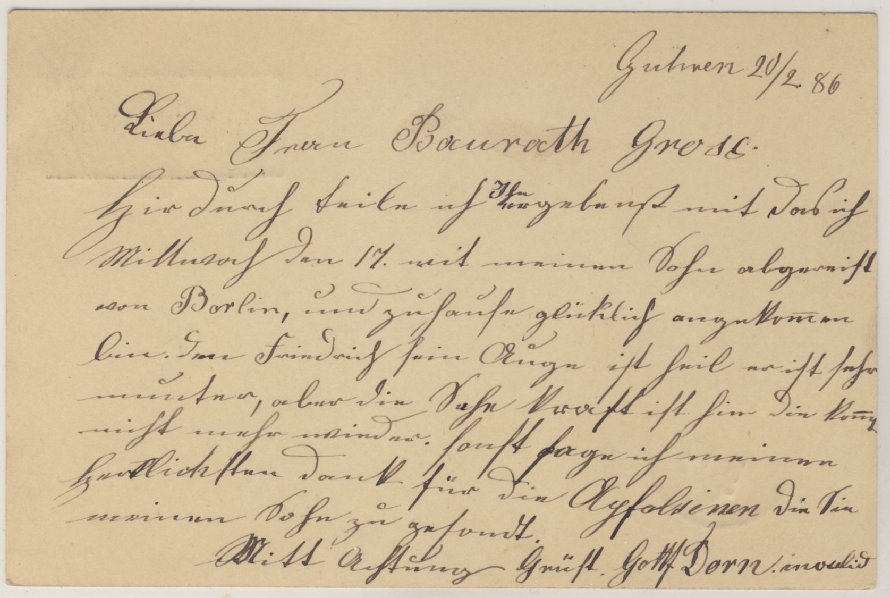 Guhren 20/2 86
Liebe Frau Baurath Gross.
Hir durch teile ich Ihn ergebenst mit das ich
Mittwoch den 17. mit meinen Sohn abgereist
von Berlin, und zuhause glücklich angekommen
bin. den Friedrich sein Auge ist heil er ist sehr
munter, aber die Sehe kraft ist hin die kommt
nicht mehr wieder. sonst sage ich meinen
herzlichsten dank für die Apfelsinen die Sie
meinen Sohn zu gesandt.
Mitt Achtung Grüst. Gottf Dorn. invalid